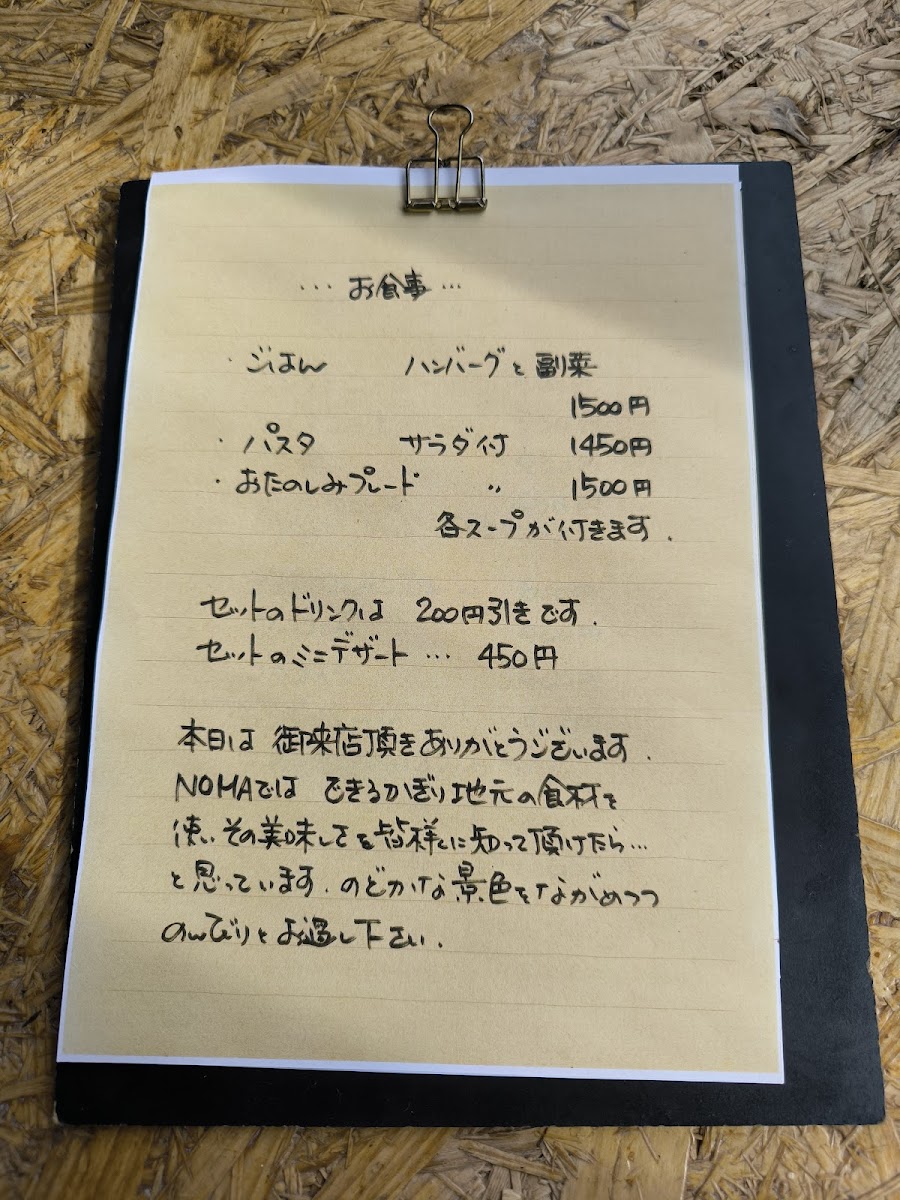 … お食事 …
・ごはん ハンバーグと副菜
1500円
・パスタ サラダ付 1450円
・おたのしみプレード 〃 1500円
各スープが付きます.
セットのドリンクは 200円引きです.
セットのミニデザート … 450円
本日は 御来店頂きありがとうございます.
NOMAでは できるかぎり地元の食材を
使い その美味しさを皆様に知って頂けたら…
と思っています. のどかな景色をながめつつ
のんびりとお過し下さい.